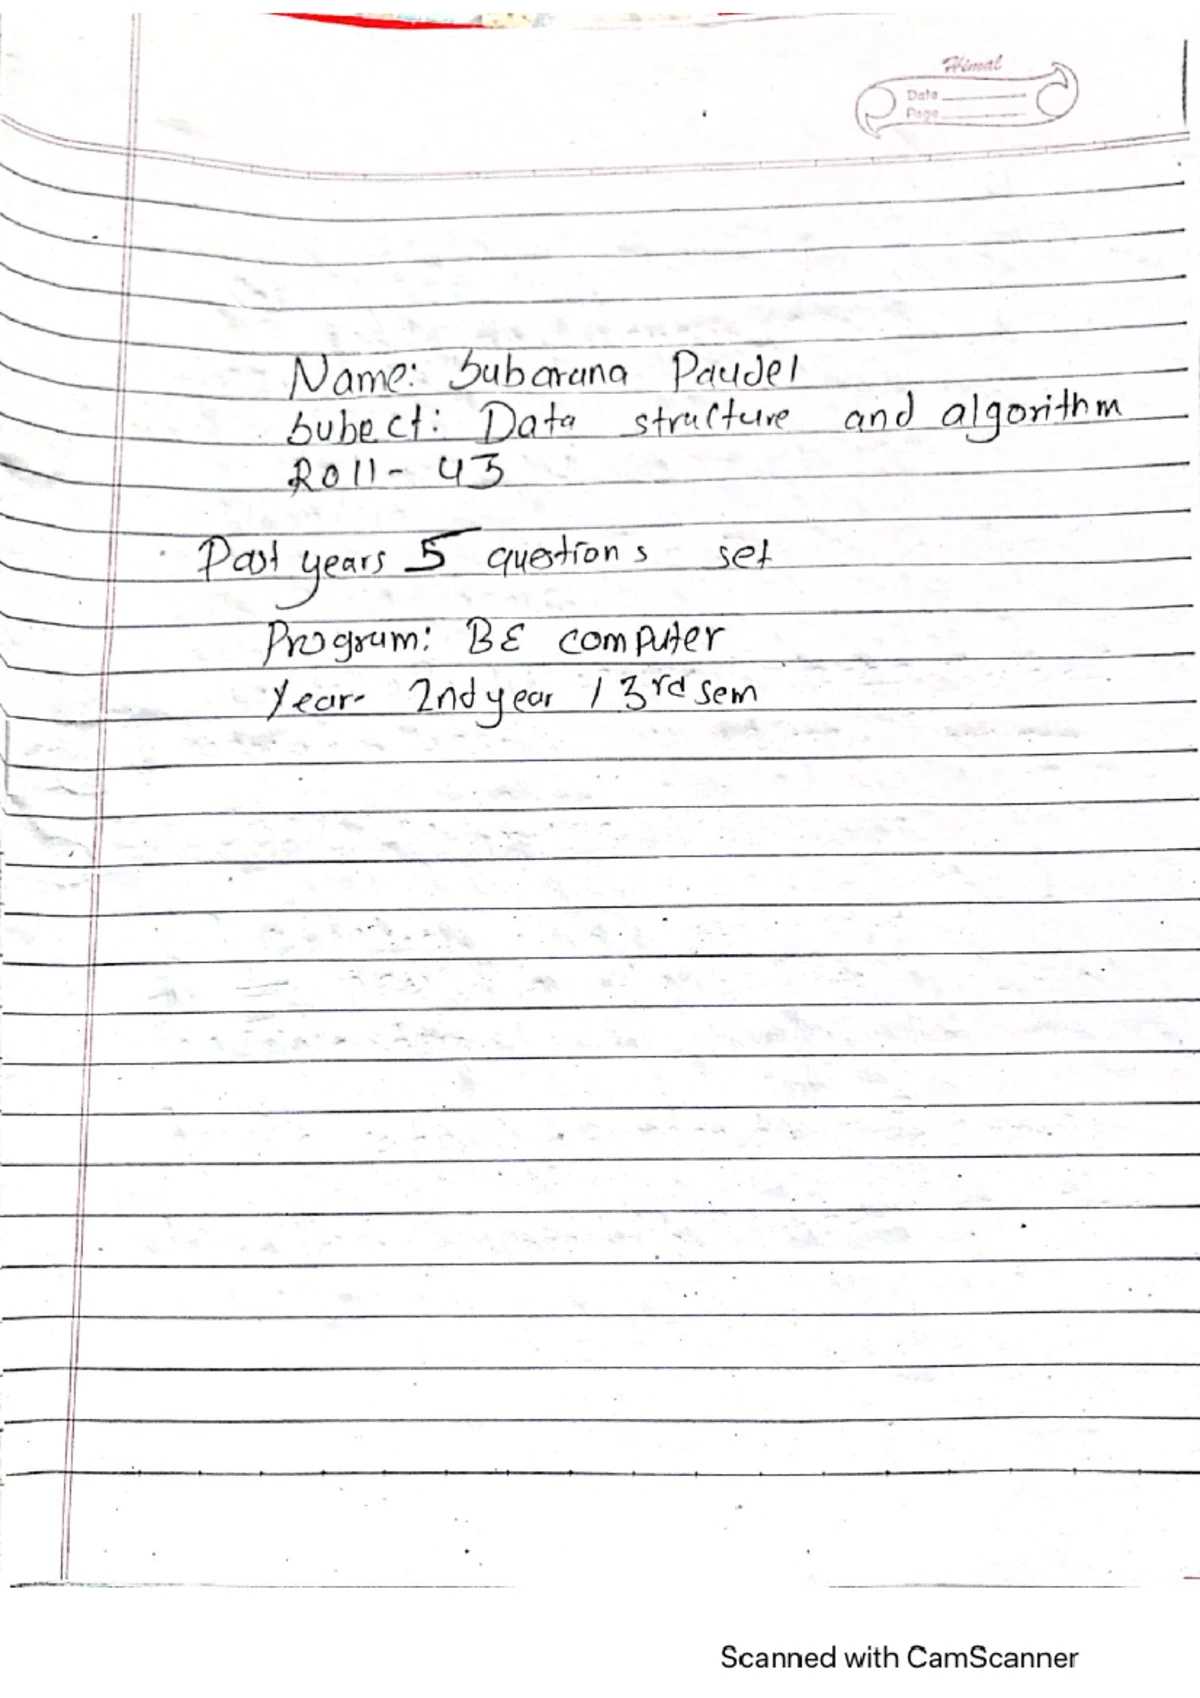 Himal
Date
Page
Name: Subarana Paudel
Subect: Data structure and algorithm
Roll- 43
Past years 5 questions set
Program: BE computer
Year- 2nd year / 3rd sem
Scanned with CamScanner